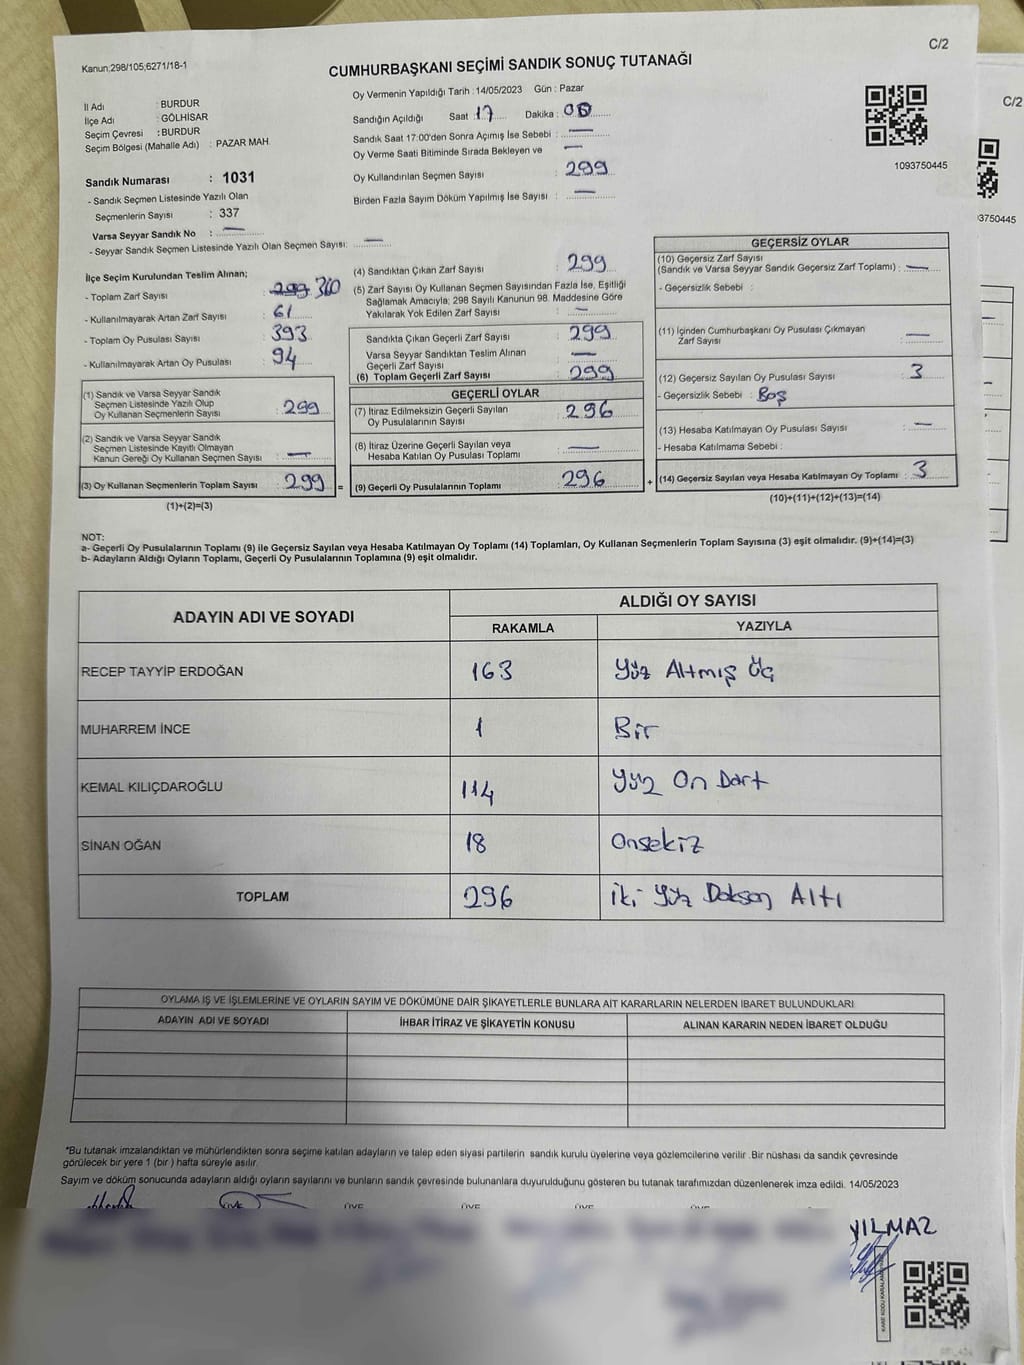 C/2
Kanun:298/105,6271/18-1
CUMHURBAŞKANI SEÇİMİ SANDIK SONUÇ TUTANAĞI
İl Adı : BURDUR
İlçe Adı : GÖLHİSAR
Seçim Çevresi : BURDUR
Seçim Bölgesi (Mahalle Adı) : PAZAR MAH.
Sandık Numarası : 1031
- Sandık Seçmen Listesinde Yazılı Olan
Seçmenlerin Sayısı : 337
Varsa Seyyar Sandık No : —
- Seyyar Sandık Seçmen Listesinde Yazılı Olan Seçmen Sayısı: —
Oy Vermenin Yapıldığı Tarih : 14/05/2023 Gün : Pazar
Sandığın Açıldığı Saat : 17 Dakika : 00
Sandık Saat 17:00'den Sonra Açımış İse Sebebi : —
Oy Verme Saati Bitiminde Sırada Bekleyen ve —
Oy Kullandırılan Seçmen Sayısı : 299
Birden Fazla Sayım Döküm Yapılmış İse Sayısı : —
1093750445
C/2
93750445
İlçe Seçim Kurulundan Teslim Alınan;
- Toplam Zarf Sayısı : 299 360
- Kullanılmayarak Artan Zarf Sayısı : 61
- Toplam Oy Pusulası Sayısı : 393
- Kullanılmayarak Artan Oy Pusulası : 94
(1) Sandık ve Varsa Seyyar Sandık
Seçmen Listesinde Yazılı Olup
Oy Kullanan Seçmenlerin Sayısı : 299
(2) Sandık ve Varsa Seyyar Sandık
Seçmen Listesinde Kayıtlı Olmayan
Kanun Gereği Oy Kullanan Seçmen Sayısı : —
(3) Oy Kullanan Seçmenlerin Toplam Sayısı : 299 =
(1)+(2)=(3)
(4) Sandıktan Çıkan Zarf Sayısı : 299
(5) Zarf Sayısı Oy Kullanan Seçmen Sayısından Fazla İse, Eşitliği
Sağlamak Amacıyla; 298 Sayılı Kanunun 98. Maddesine Göre
Yakılarak Yok Edilen Zarf Sayısı : —
Sandıkta Çıkan Geçerli Zarf Sayısı : 299
Varsa Seyyar Sandıktan Teslim Alınan
Geçerli Zarf Sayısı : —
(6) Toplam Geçerli Zarf Sayısı : 299
GEÇERLİ OYLAR
(7) İtiraz Edilmeksizin Geçerli Sayılan
Oy Pusulalarının Sayısı : 296
(8) İtiraz Üzerine Geçerli Sayılan veya
Hesaba Katılan Oy Pusulası Toplamı : —
(9) Geçerli Oy Pusulalarının Toplamı : 296 +
GEÇERSİZ OYLAR
(10) Geçersiz Zarf Sayısı
(Sandık ve Varsa Seyyar Sandık Geçersiz Zarf Toplamı) : —
- Geçersizlik Sebebi :
(11) İçinden Cumhurbaşkanı Oy Pusulası Çıkmayan
Zarf Sayısı : —
(12) Geçersiz Sayılan Oy Pusulası Sayısı : 3
- Geçersizlik Sebebi : Boş
(13) Hesaba Katılmayan Oy Pusulası Sayısı : —
- Hesaba Katılmama Sebebi :
(14) Geçersiz Sayılan veya Hesaba Katılmayan Oy Toplamı : 3
(10)+(11)+(12)+(13)=(14)
NOT:
a- Geçerli Oy Pusulalarının Toplamı (9) ile Geçersiz Sayılan veya Hesaba Katılmayan Oy Toplamı (14) Toplamları, Oy Kullanan Seçmenlerin Toplam Sayısına (3) eşit olmalıdır. (9)+(14)=(3)
b- Adayların Aldığı Oyların Toplamı, Geçerli Oy Pusulalarının Toplamına (9) eşit olmalıdır.
ADAYIN ADI VE SOYADI ALDIĞI OY SAYISI
RAKAMLA YAZIYLA
RECEP TAYYİP ERDOĞAN 163 Yüz Altmış Üç
MUHARREM İNCE 1 Bir
KEMAL KILIÇDAROĞLU 114 Yüz On Dört
SİNAN OĞAN 18 Onsekiz
TOPLAM 296 İki Yüz Doksan Altı
OYLAMA İŞ VE İŞLEMLERİNE VE OYLARIN SAYIM VE DÖKÜMÜNE DAİR ŞİKAYETLERLE BUNLARA AİT KARARLARIN NELERDEN İBARET BULUNDUKLARI
ADAYIN ADI VE SOYADI İHBAR İTİRAZ VE ŞİKAYETİN KONUSU ALINAN KARARIN NEDEN İBARET OLDUĞU
*Bu tutanak imzalandıktan ve mühürlendikten sonra seçime katılan adayların ve talep eden siyasi partilerin sandık kurulu üyelerine veya gözlemcilerine verilir .Bir nüshası da sandık çevresinde
görülecek bir yere 1 (bir ) hafta süreyle asılır.
Sayım ve döküm sonucunda adayların aldığı oyların sayılarını ve bunların sandık çevresinde bulunanlara duyurulduğunu gösteren bu tutanak tarafımızdan düzenlenerek imza edildi. 14/05/2023
ÜYE ÜYE ÜYE ÜYE ÜYE
YILMAZ